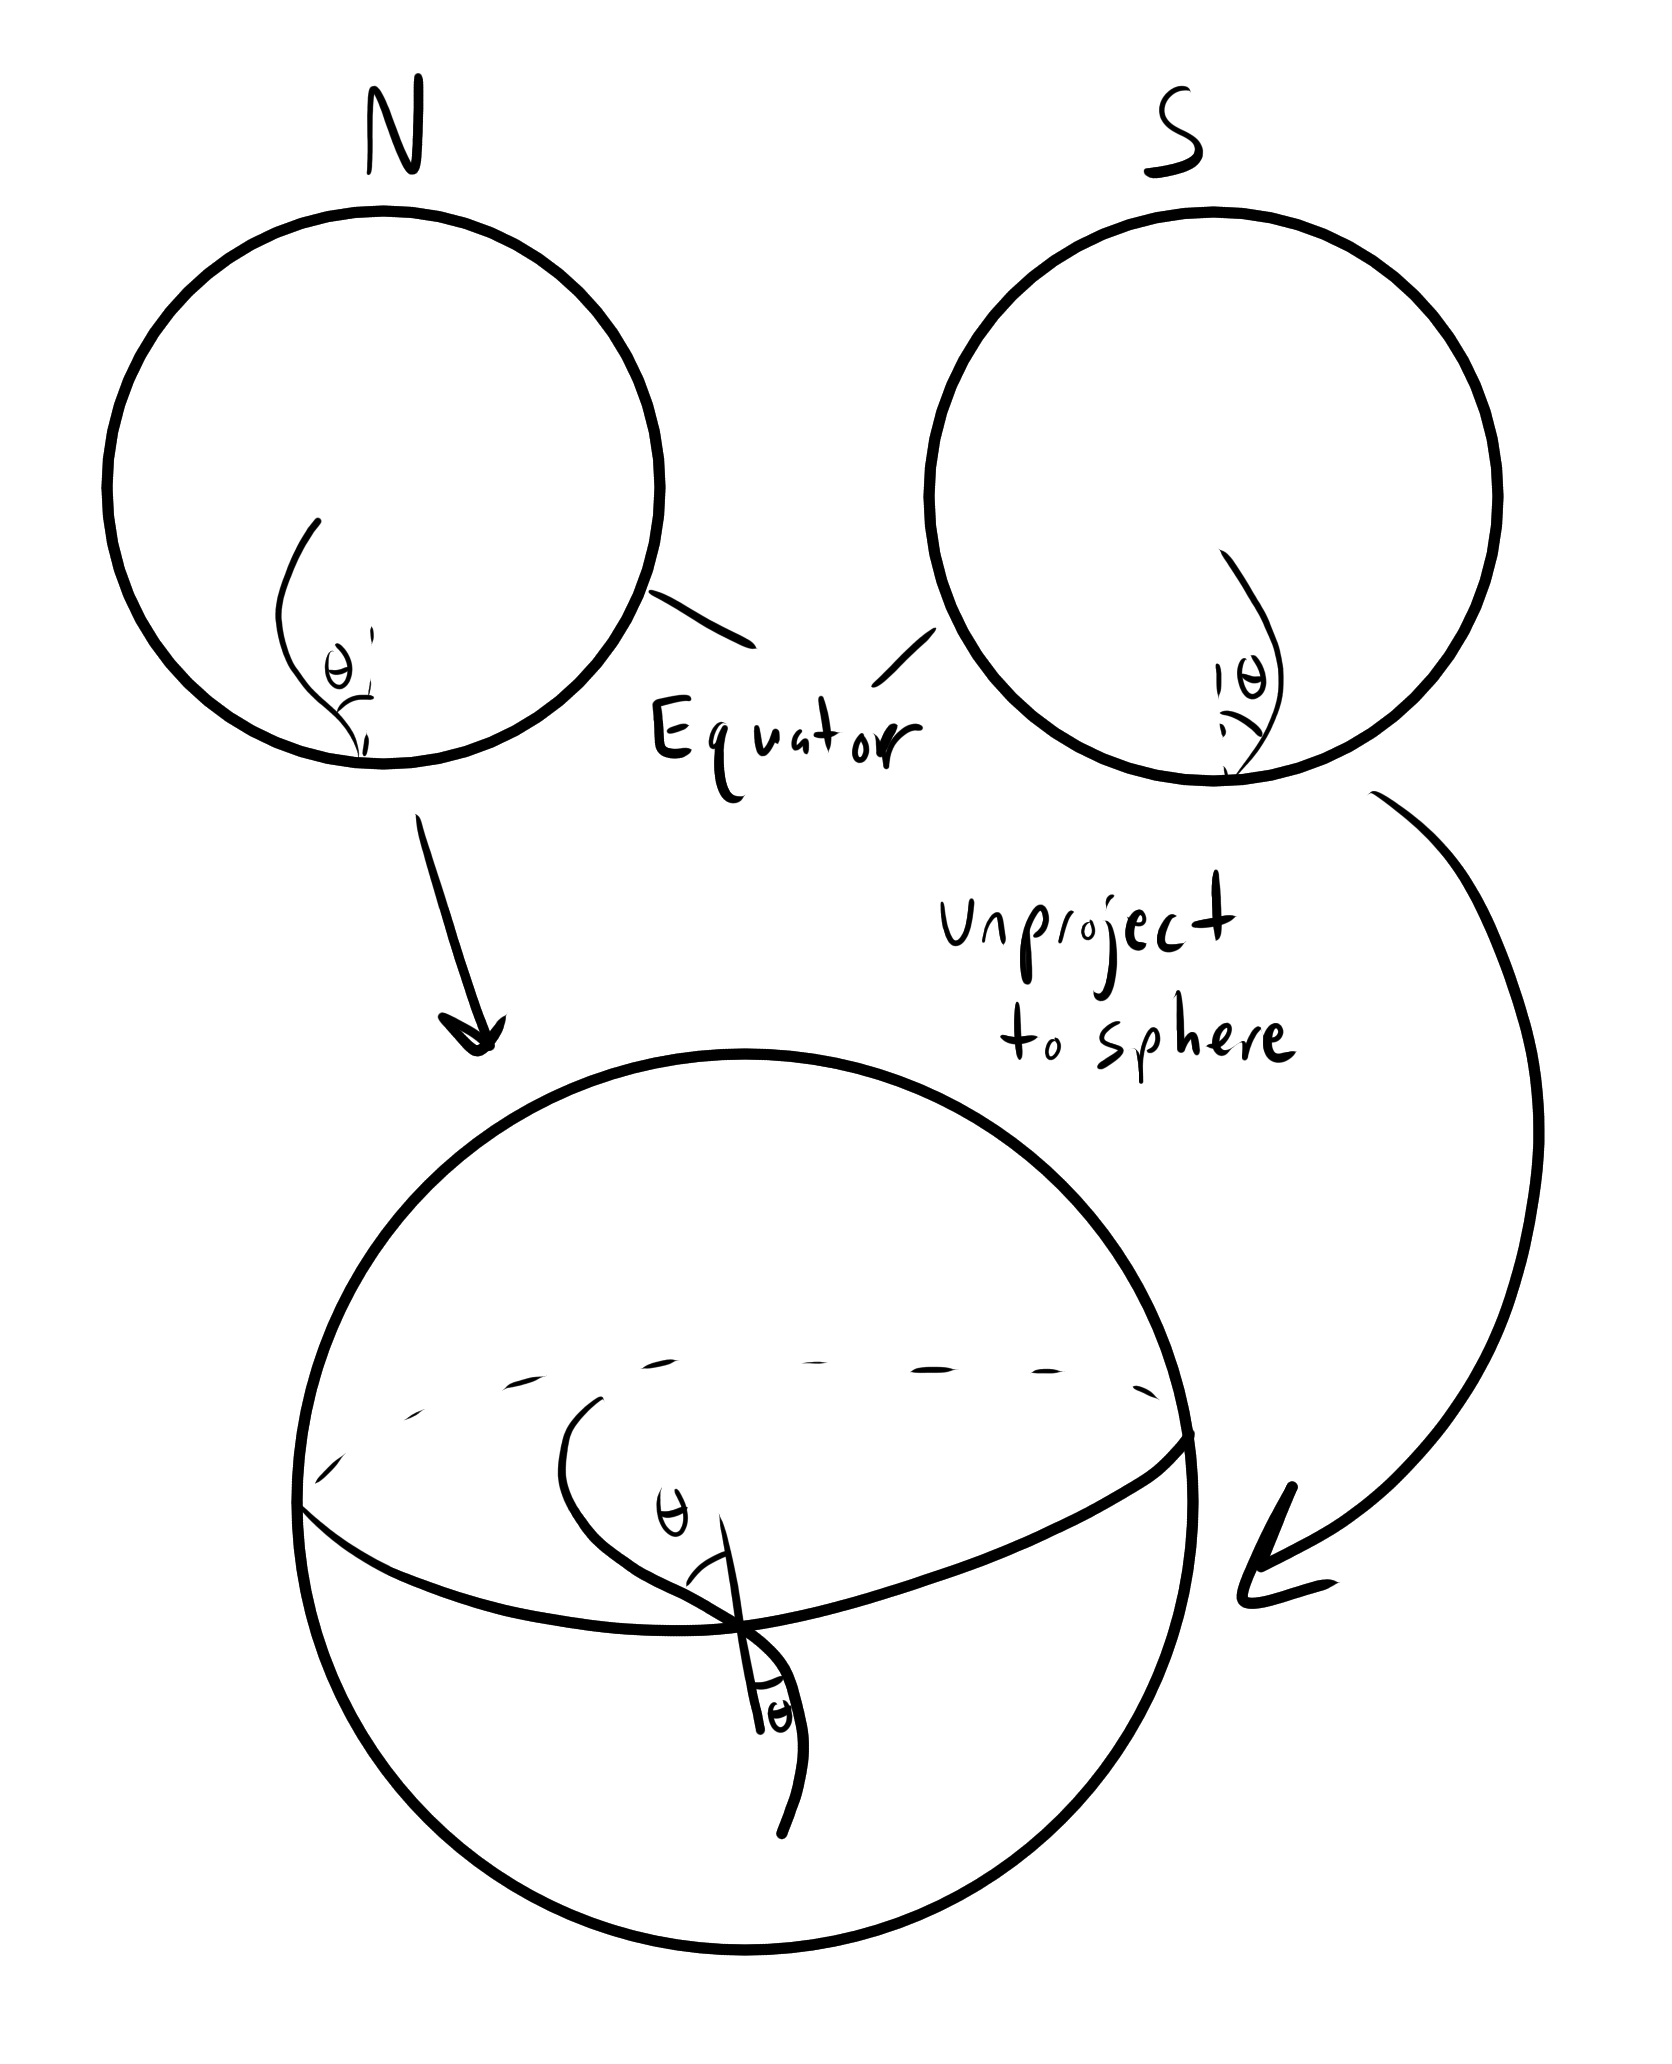 N
S
θ
θ
Equator
Unproject
to sphere
θ
θ